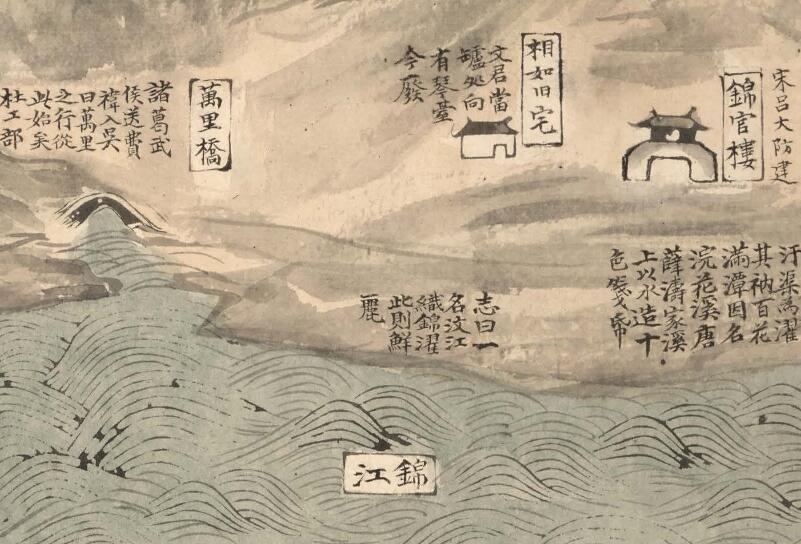 錦官樓
宋呂大防建
相如旧宅
文君當
罏処向
有琴臺
今廢
萬里橋
諸葛武
侯送費
禕入吴
曰萬里
之行從
此始矣
杜工部
汙渠為濯
其衲百花
滿潭因名
浣花溪唐
薛濤家溪
上以水造十
色箋帋
志曰一
名汶江
織錦濯
此則鮮
麗
錦江